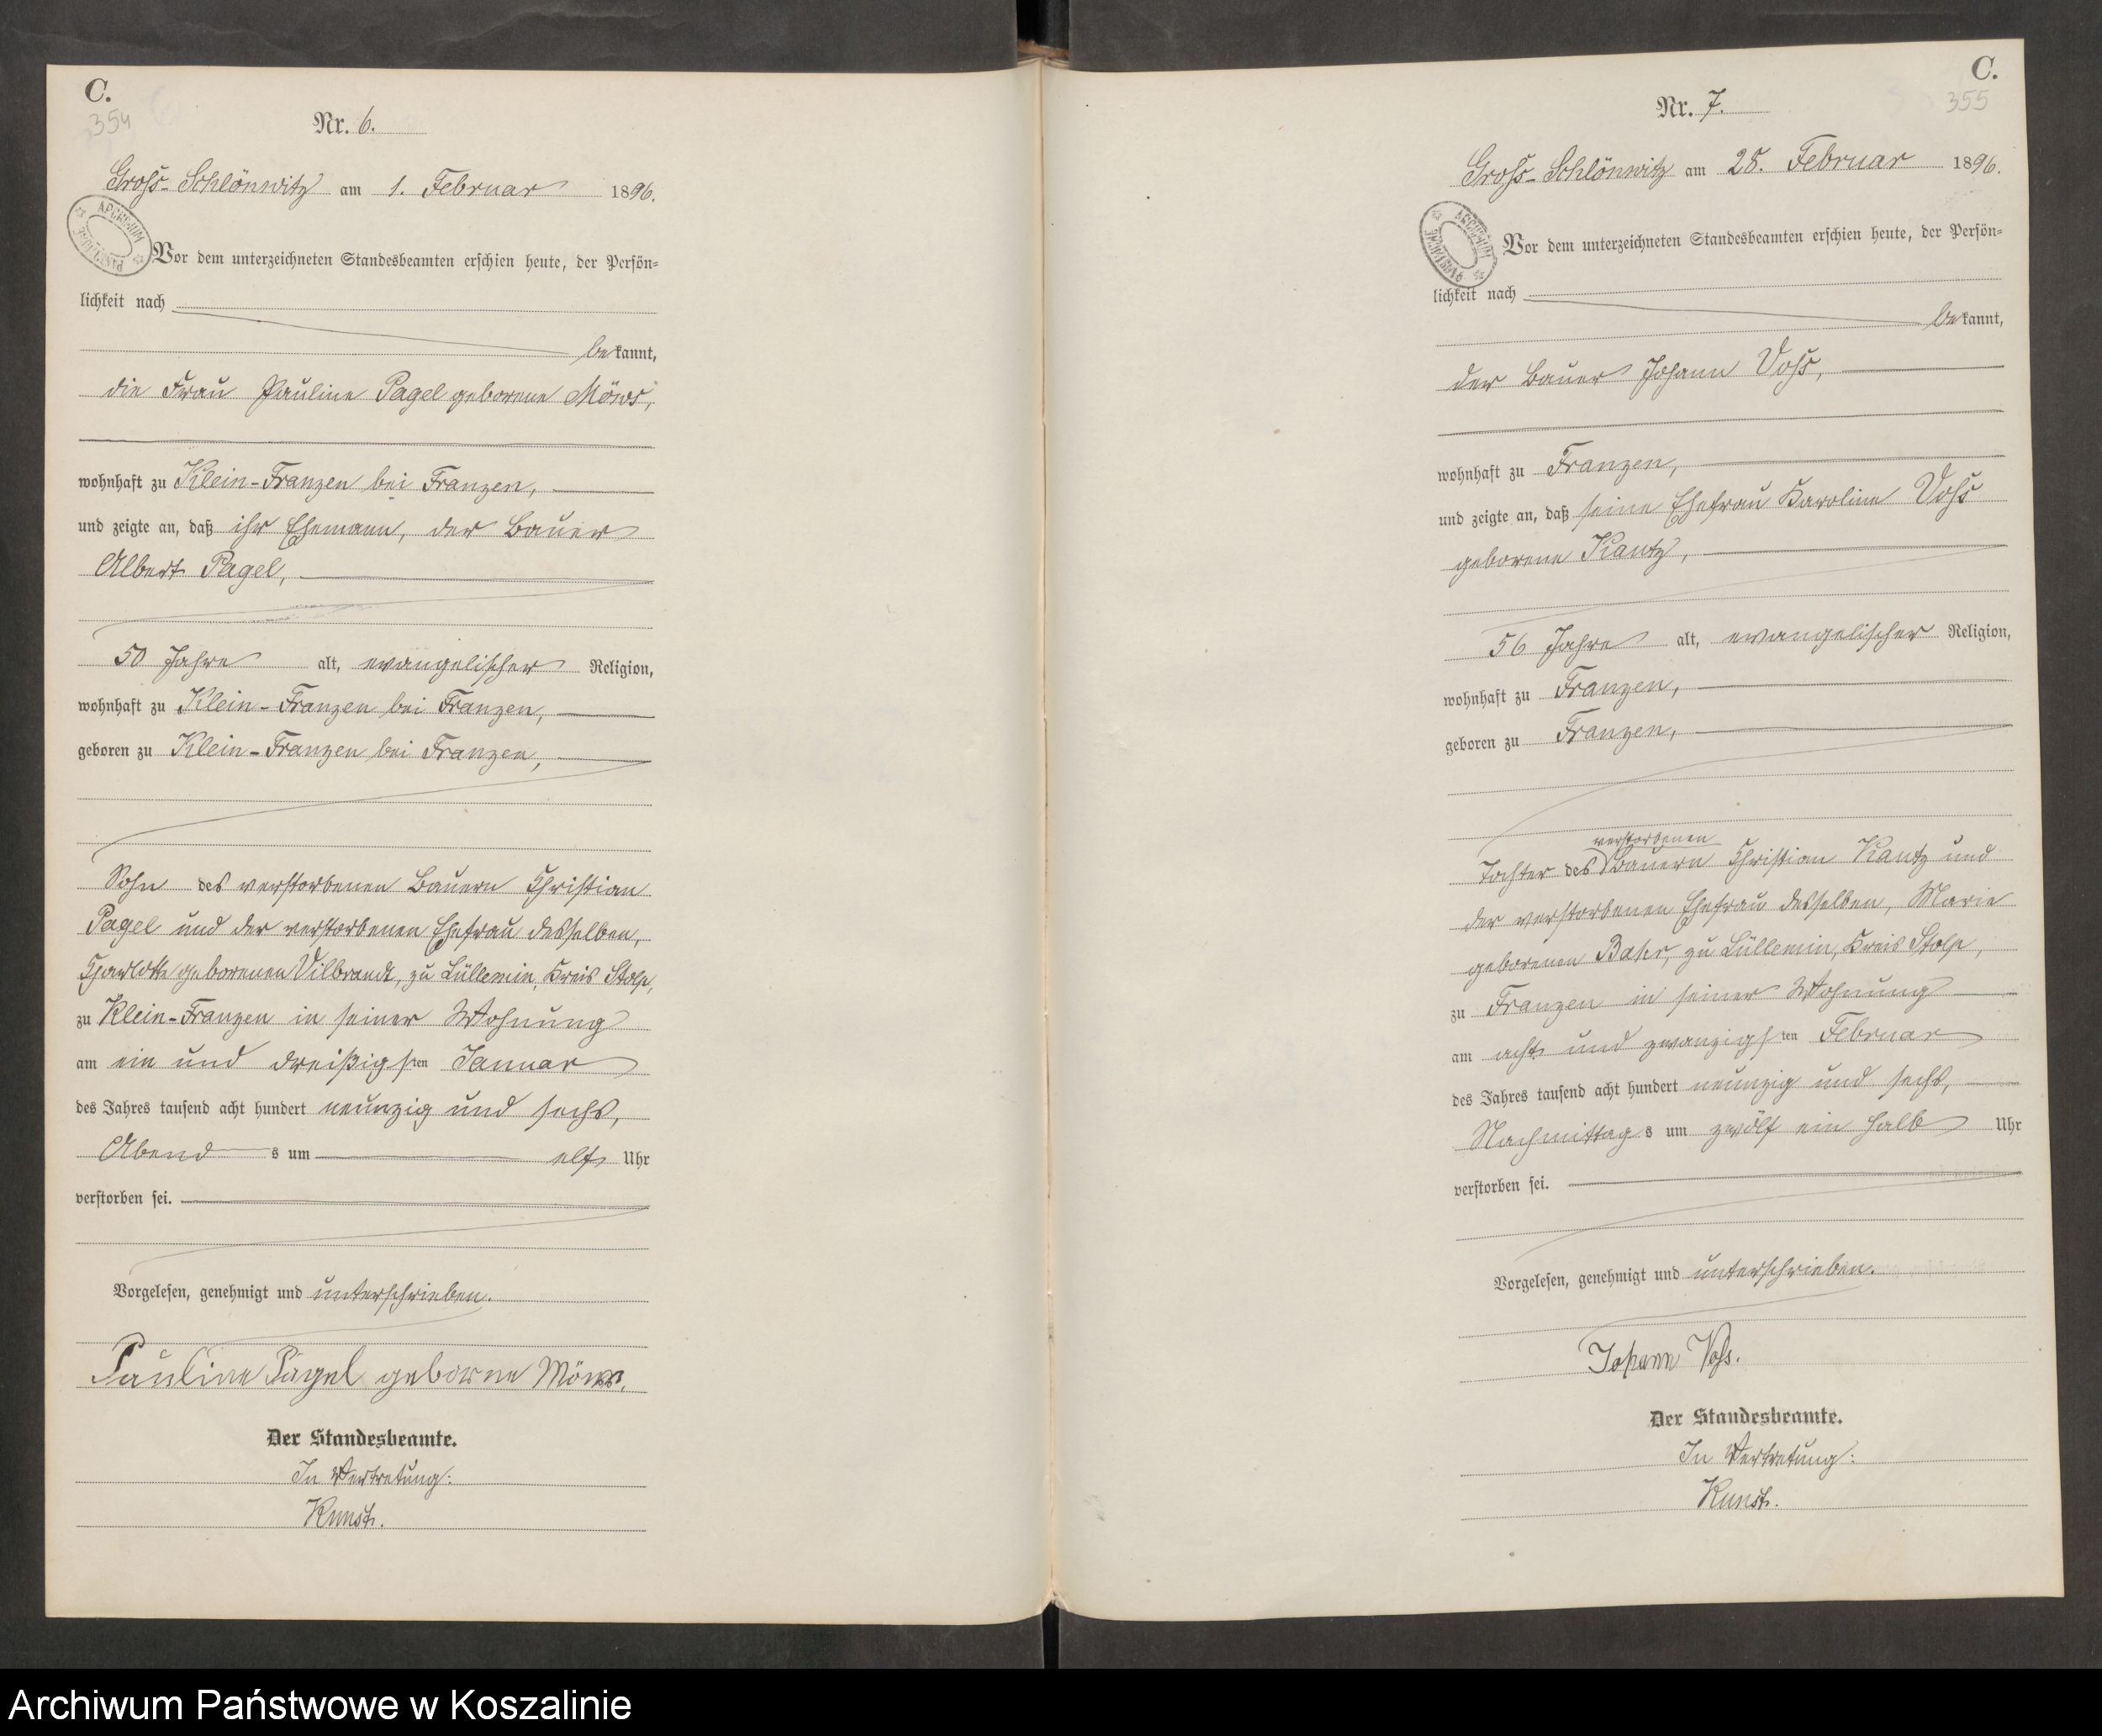 C.
354
Nr. 6.
Groß-Schlönwitz am 1. Februar 1896.
ARCHIWUM PAŃSTWOWE
Vor dem unterzeichneten Standesbeamten erschien heute, der Persön=
lichkeit nach
bekannt,
die Frau Pauline Pagel geborene Möws,
wohnhaft zu Klein-Franzen bei Franzen,
und zeigte an, daß ihr Ehemann, der Bauer
Albert Pagel,
50 Jahre alt, evangelischer Religion,
wohnhaft zu Klein-Franzen bei Franzen,
geboren zu Klein-Franzen bei Franzen,
Sohn des verstorbenen Bauern Christian
Pagel und der verstorbenen Ehefrau desselben,
Charlotte geborenen Vilbrandt, zu Lüllemin, Kreis Stolp,
zu Klein-Franzen in seiner Wohnung
am ein und dreißigsten Januar
des Jahres tausend acht hundert neunzig und sechs,
Abends um elf Uhr
verstorben sei.
Vorgelesen, genehmigt und unterschrieben.
Pauline Pagel geborne Möws.
Der Standesbeamte.
In Vertretung:
Kunst.
C.
355
Nr. 7.
Groß-Schlönwitz am 28. Februar 1896.
ARCHIWUM PAŃSTWOWE
Vor dem unterzeichneten Standesbeamten erschien heute, der Persön=
lichkeit nach
bekannt,
der Bauer Johann Voß,
wohnhaft zu Franzen,
und zeigte an, daß seine Ehefrau Karoline Voß
geborene Kautz,
56 Jahre alt, evangelischer Religion,
wohnhaft zu Franzen,
geboren zu Franzen,
verstorbenen
Tochter des Bauern Christian Kautz und
der verstorbenen Ehefrau desselben, Marie
geborenen Bahr, zu Lüllemin, Kreis Stolp,
zu Franzen in seiner Wohnung
am acht und zwanzigsten Februar
des Jahres tausend acht hundert neunzig und sechs,
Nachmittags um zwölf ein halb Uhr
verstorben sei.
Vorgelesen, genehmigt und unterschrieben.
Johann Voß.
Der Standesbeamte.
In Vertretung:
Kunst.
Archiwum Państwowe w Koszalinie